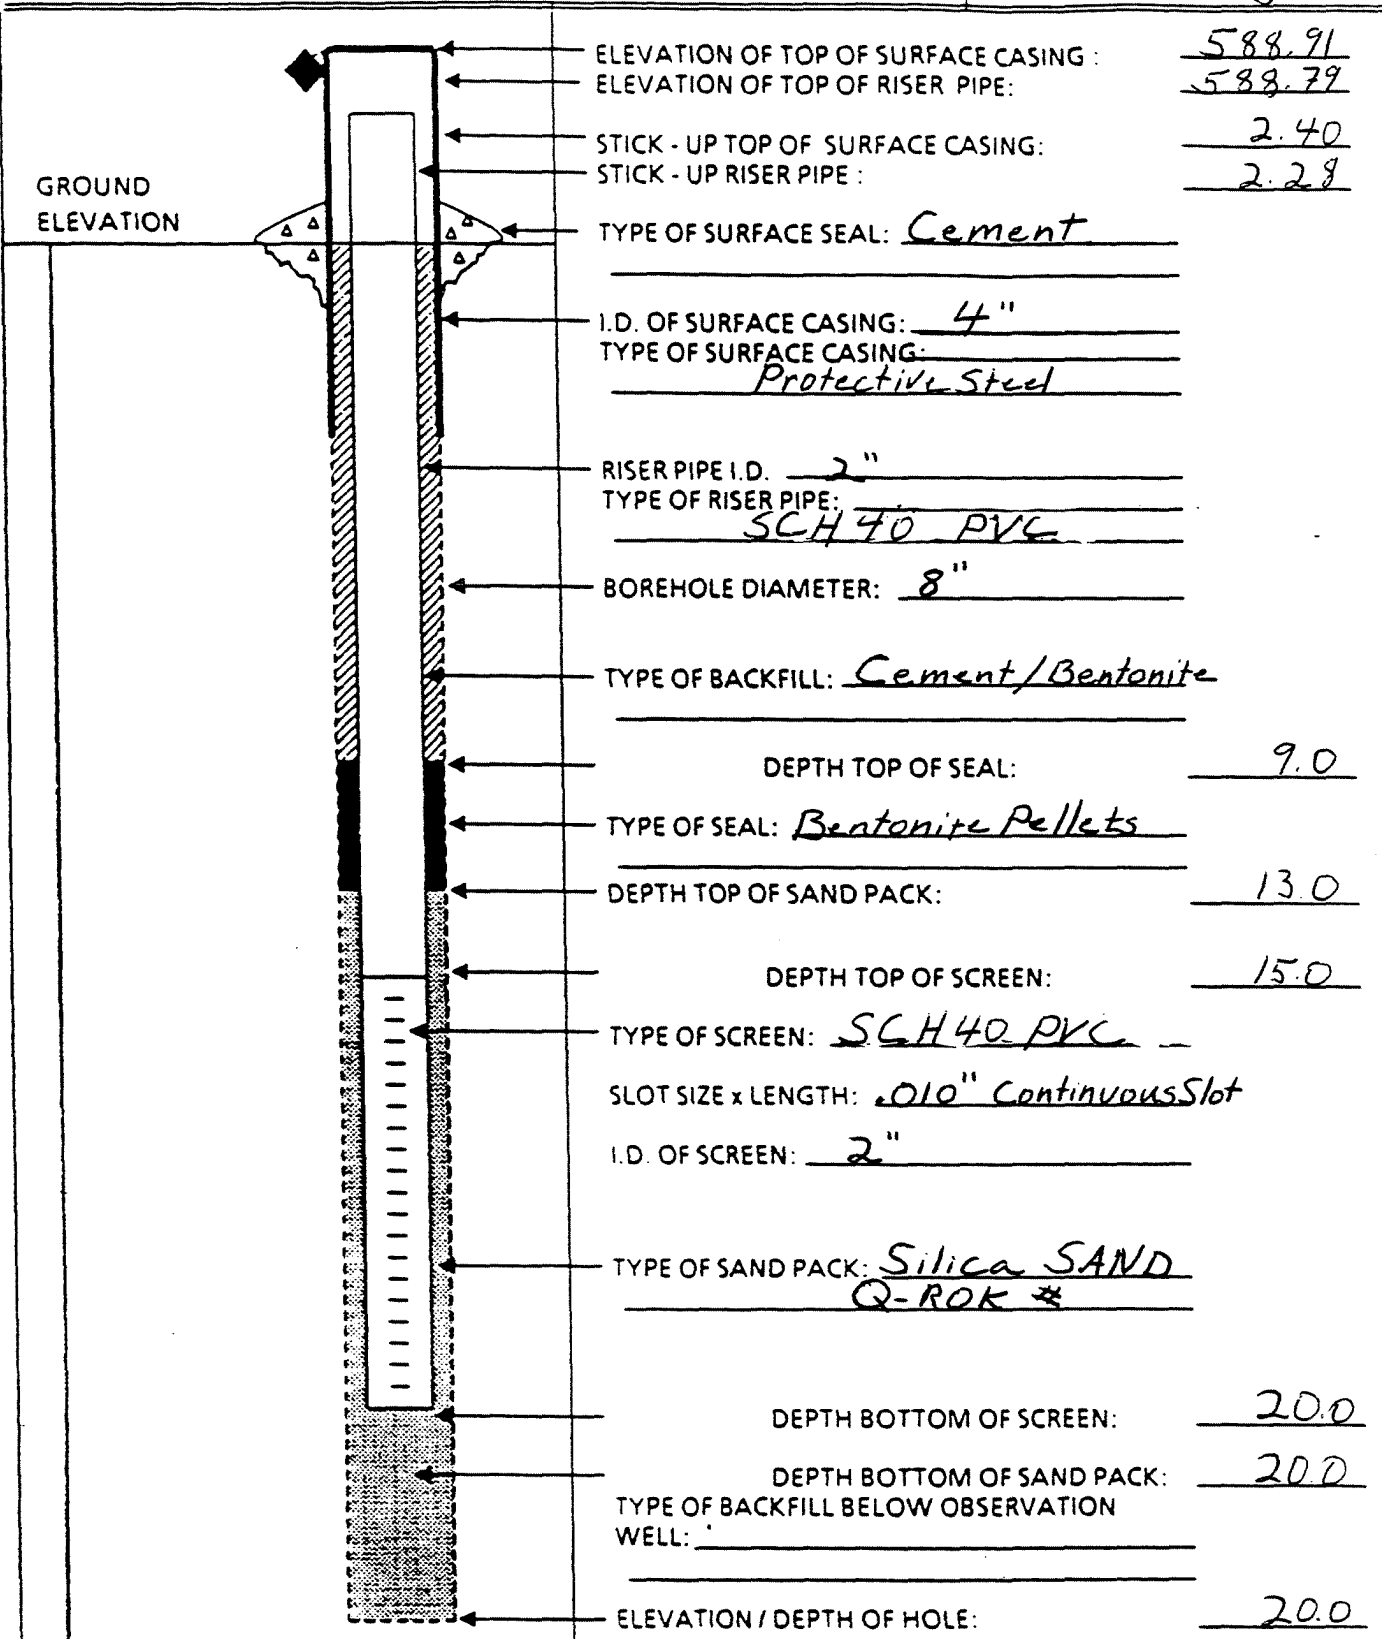 ELEVATION OF TOP OF SURFACE CASING : 588.91
ELEVATION OF TOP OF RISER PIPE: 588.79
STICK - UP TOP OF SURFACE CASING: 2.40
STICK - UP RISER PIPE : 2.28
GROUND
ELEVATION
TYPE OF SURFACE SEAL: Cement
I.D. OF SURFACE CASING: 4"
TYPE OF SURFACE CASING:
Protective Steel
RISER PIPE I.D. 2"
TYPE OF RISER PIPE:
SCH 40 PVC
BOREHOLE DIAMETER: 8"
TYPE OF BACKFILL: Cement/Bentonite
DEPTH TOP OF SEAL: 9.0
TYPE OF SEAL: Bentonite Pellets
DEPTH TOP OF SAND PACK: 13.0
DEPTH TOP OF SCREEN: 15.0
TYPE OF SCREEN: SCH 40 PVC
SLOT SIZE x LENGTH: .010" Continuous Slot
I.D. OF SCREEN: 2"
TYPE OF SAND PACK: Silica SAND
Q-ROK #
DEPTH BOTTOM OF SCREEN: 20.0
DEPTH BOTTOM OF SAND PACK: 20.0
TYPE OF BACKFILL BELOW OBSERVATION
WELL:
ELEVATION / DEPTH OF HOLE: 20.0